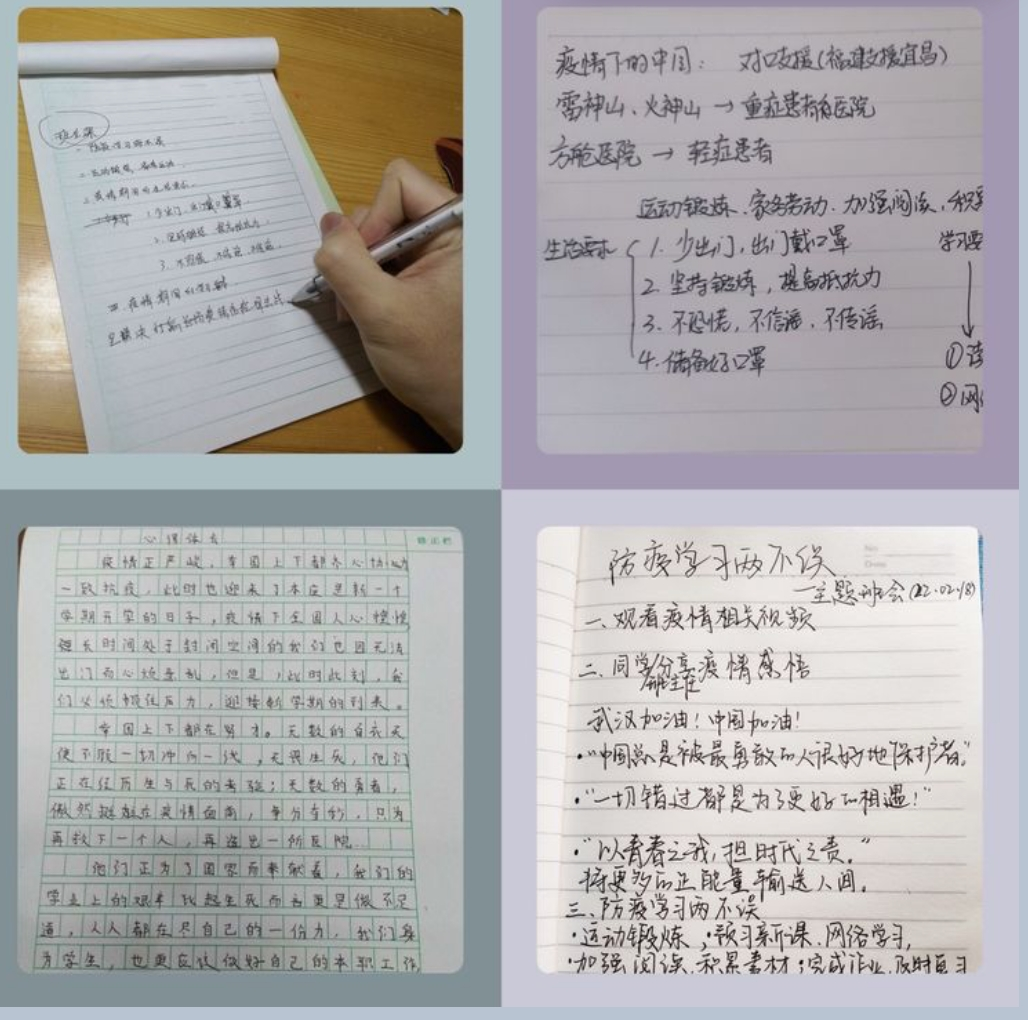 班会
一、防疫学习两不误
二、运动锻炼,
三、疫情期间的生活要求
1.少出门,出门戴口罩
2.坚持锻炼,提高抵抗力
3.不恐慌,不信谣,不传谣
四、疫情期间的
疫情下的中国: 对口支援(福建支援宜昌)
雷神山、火神山 → 重症患者医院
方舱医院 → 轻症患者
运动锻炼、家务劳动、加强阅读、积累
生活要求 1. 少出门,出门戴口罩 学习要
2. 坚持锻炼,提高抵抗力
3. 不恐慌,不信谣,不传谣
4. 储备好口罩 ①读
②网
心得体会
疫情正严峻,举国上下都齐心协力
一致抗疫,此时也迎来了本应是新一个
学期开学的日子,疫情下全国人心惶惶
很长时间处于封闭空间的我们也因无法
出门而心烦意乱,但是,此时此刻,我
们必须顶住压力,迎接新学期的到来。
举国上下都在努力。无数的白衣天
使不顾一切冲向一线,无畏生死,他们
正在经历生与死的考验;无数的勇者,
傲然挺立在疫情面前,争分夺秒,只为
再救下一个人,再盖出一所医院…
他们正为了国家而奉献着,我们的
学业上的艰辛比起生死而言更是微不足
道,人人都在尽自己的一份力,我们身
为学生,也更应该做好自己的本职工作
防疫学习两不误
—主题班会(22.02.18)
一、观看疫情相关视频
二、同学分享疫情感悟
武汉加油!中国加油!
·“中国总是被最勇敢的人很好地保护着。”
·“一切错过都是为了更好的相遇!”
·“以青春之我,担时代之责。”
将更多的正能量输送人间。
三、防疫学习两不误
·运动锻炼;预习新课、网络学习,
·加强阅读、积累素材;完成作业,及时复习